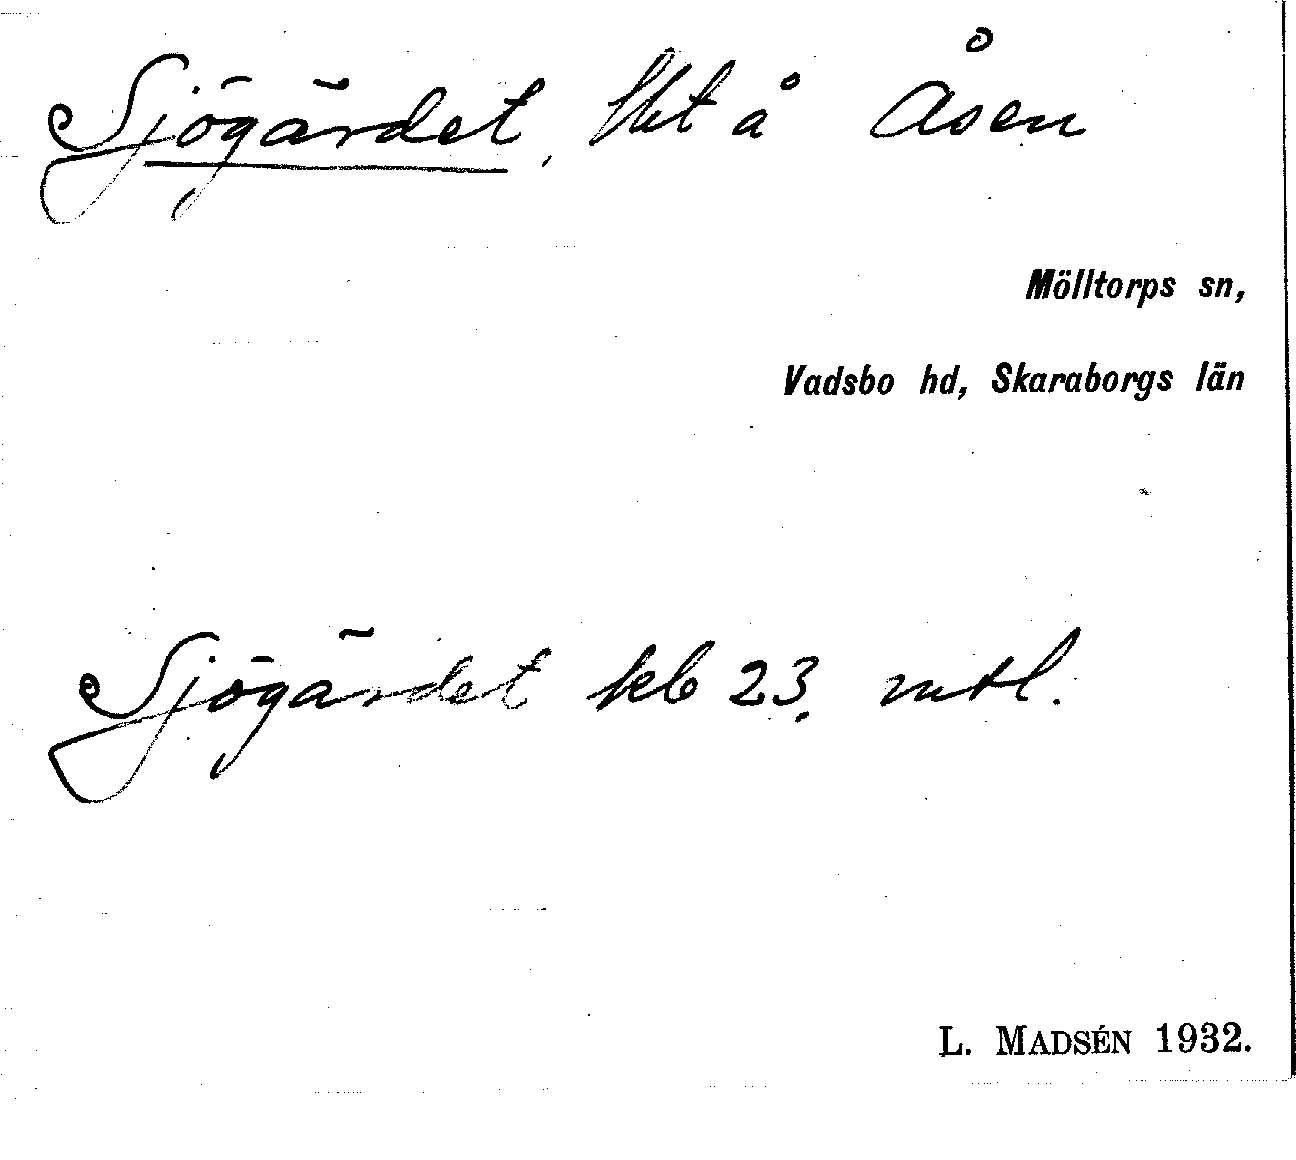 Sjögärdet, lht å Åsen
Mölltorps sn,
Vadsbo hd, Skaraborgs län
Sjögärdet kb 23, mtl.
L. MADSÉN 1932.